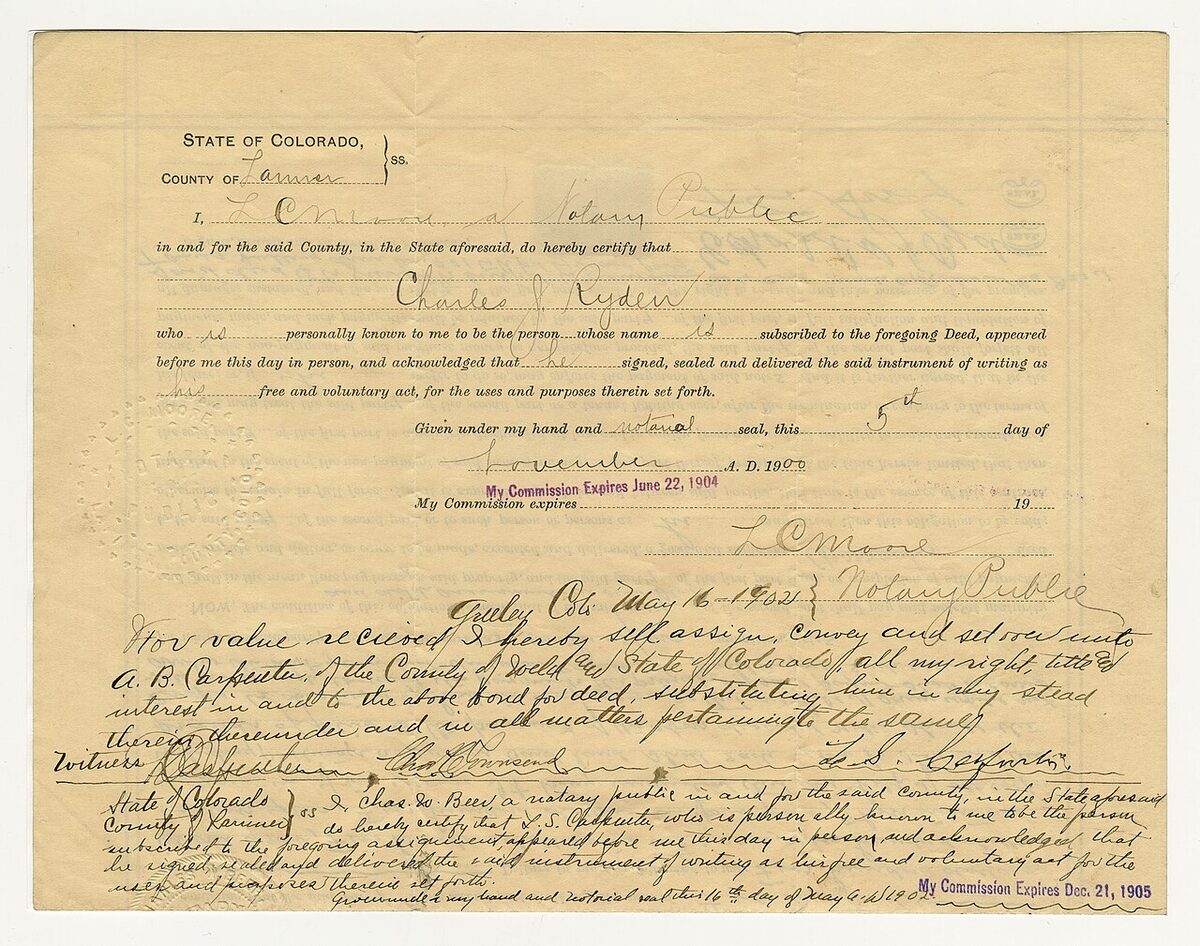 STATE OF COLORADO,
COUNTY OF Larimer ss.
I, L C Moore, a Notary Public
in and for the said County, in the State aforesaid, do hereby certify that
Charles J Ryden
who is personally known to me to be the person whose name is subscribed to the foregoing Deed, appeared
before me this day in person, and acknowledged that he signed, sealed and delivered the said instrument of writing as
his free and voluntary act, for the uses and purposes therein set forth.
Given under my hand and notarial seal, this 5th day of
November A. D. 1900
My Commission Expires June 22, 1904
My Commission expires 19
L C Moore
Notary Public
Greeley Colo. May 16 - 1902
For value recieved I hereby sell assign, convey and set over unto
A. B. Carpenter, of the County of Weld and State of Colorado, all my right, title and
interest in and to the above bond for deed, substituting him in my stead
therein thereunder and in all matters pertaining to the same
Witness Carpenter Chas E Townsend L. S. Carpenter
State of Colorado
County of Larimer ss I, Chas. W. Beer, a notary public in and for the said county, in the State aforesaid
do hereby certify that L. S. Carpenter, who is personally known to me to be the person
subscribed to the foregoing assignment appeared before me this day in person and acknowledged that
he signed, sealed and delivered the said instrument of writing as his free and voluntary act for the
uses and purposes therein set forth.
Given under my hand and notorial seal this 16th day of May A.D 1902
My Commission Expires Dec. 21, 1905